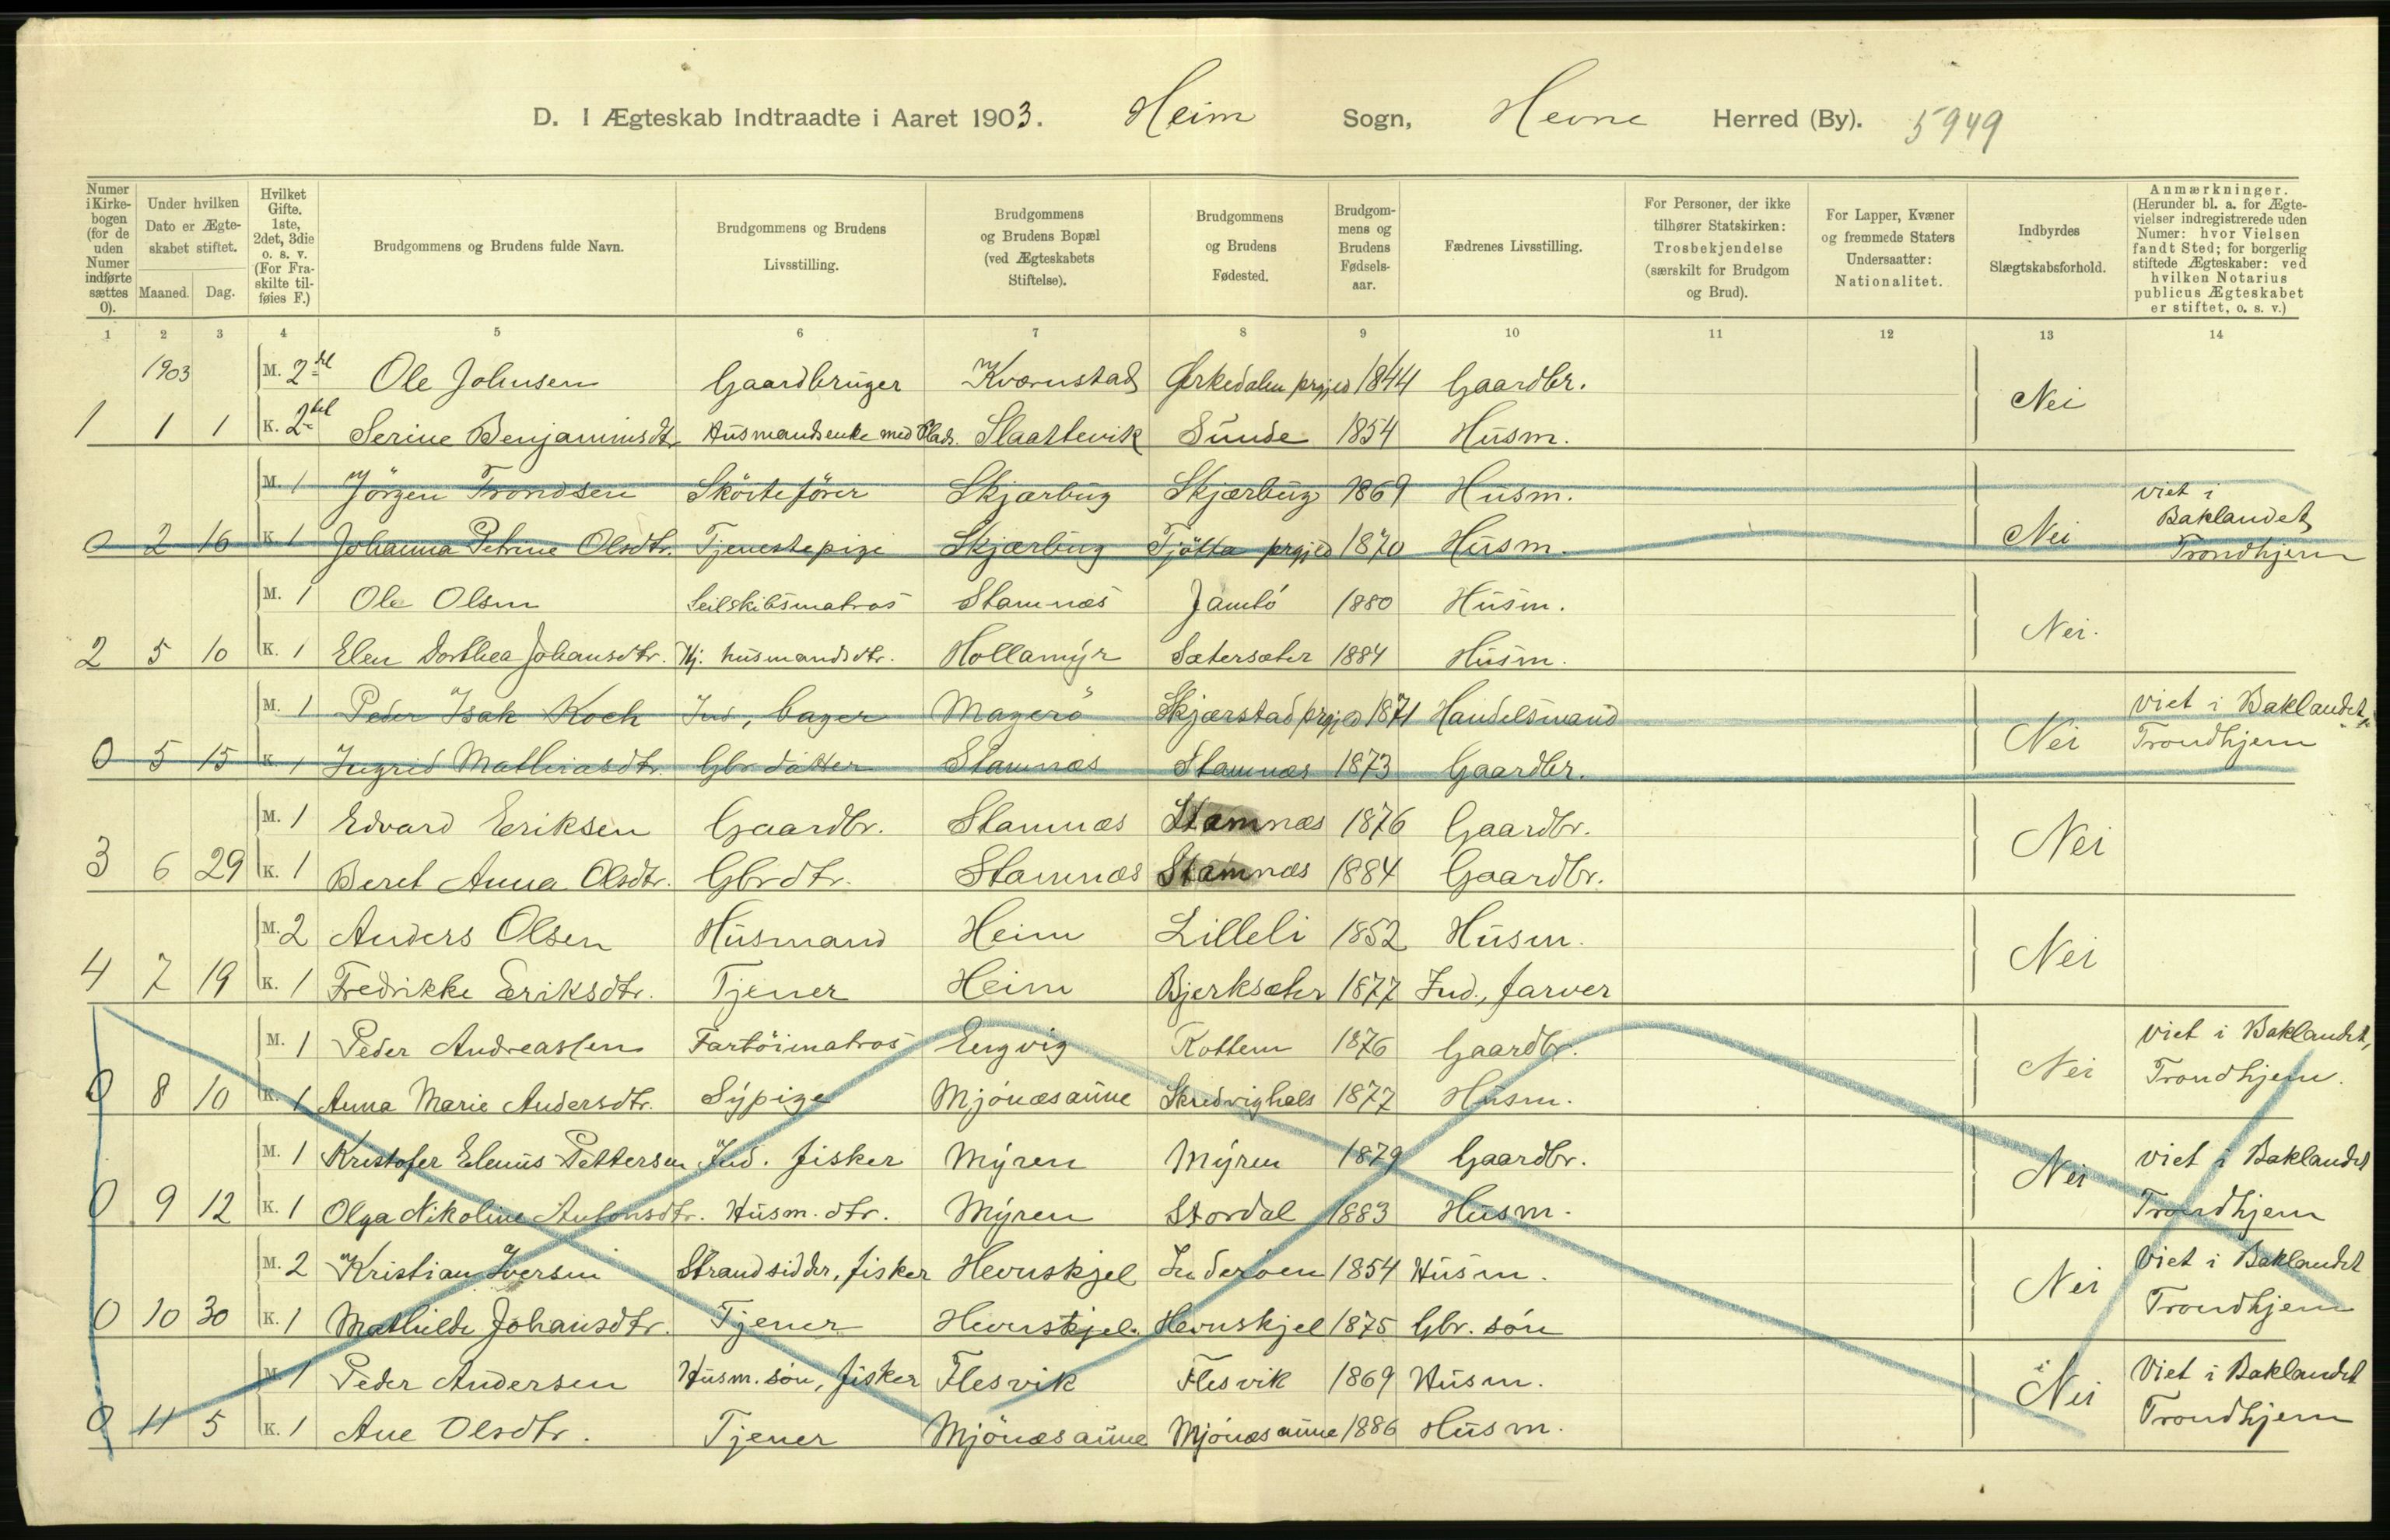 D. I Ægteskab Indtraadte i Aaret 1903. Heim Sogn, Hevne Herred (By). 5949
Numer i Kirkebogen (for de uden Numer indførte sættes 0).
Under hvilken Dato er Ægteskabet stiftet.
Maaned. Dag.
Hvilket Gifte. 1ste, 2det, 3die o. s. v. (For Fraskilte tilføies F.)
Brudgommens og Brudens fulde Navn.
Brudgommens og Brudens Livsstilling.
Brudgommens og Brudens Bopæl (ved Ægteskabets Stiftelse).
Brudgommens og Brudens Fødested.
Brudgommens og Brudens Fødselsaar.
Fædrenes Livsstilling.
For Personer, der ikke tilhører Statskirken: Trosbekjendelse (særskilt for Brudgom og Brud).
For Lapper, Kvæner og fremmede Staters Undersaatter: Nationalitet.
Indbyrdes Slægtskabsforhold.
Anmærkninger. (Herunder bl. a. for Ægtevielser indregistrerede uden Numer: hvor Vielsen fandt Sted; for borgerlig stiftede Ægteskaber: ved hvilken Notarius publicus Ægteskabet er stiftet, o. s. v.)
1 2 3 4 5 6 7 8 9 10 11 12 13 14
1903 M. 2det Ole Johnsen Gaardbruger Kvernstad Ørkedalen prgjed 1844 Gaardbr.
1 1 1 K. 2det Serine Benjaminsdtr. Husmandsenke med Plads. Slaattevik Sunde 1854 Husm. Nei
M. 1 Jörgen Trondsen Skörtefører Skjærbug Skjærbug 1869 Husm. viet i
0 2 16 K. 1 Johanna Petrine Olsdtr. Tjenestepige Skjærbug Tjötta prgjed 1870 Husm. Nei Baklandet, Trondhjem
M. 1 Ole Olsen Seilskibsmatros Stamnæs Jamtö 1880 Husm.
2 5 10 K. 1 Elen Dorthea Johansdtr. Hj. husmandsdtr. Hollamyr Sætersæter 1884 Husm. Nei.
M. 1 Peder Isak Koch Ind, bager Magerö Skjærstad prgjed 1871 Handelsmand viet i Baklandet,
0 5 15 K. 1 Ingrid Mathiasdtr. Gbr datter Stamnæs Stamnæs 1873 Gaardbr. Nei Trondhjem
M. 1 Edvard Eriksen Gaardbr. Stamnæs Stamnæs 1876 Gaardbr.
3 6 29 K. 1 Beret Anna Olsdtr. Gbrdtr. Stamnæs Stamnæs 1884 Gaardbr. Nei
M. 2 Anders Olsen Husmand Heim Lilleli 1852 Husm.
4 7 19 K. 1 Fredrikke Eriksdtr. Tjener Heim Bjerksæter 1877 Ind., farver Nei
M. 1 Peder Andreassen Fartöimatros Engvig Rottem 1876 Gaardbr. viet i Baklandet,
0 8 10 K. 1 Anna Marie Andersdtr. Sypige Mjönæsaune Skredvighals 1877 Husm. Nei Trondhjem.
M. 1 Kristofer Elenus Pettersen Ind. fisker Myren Myren 1879 Gaardbr. viet i Baklandet
0 9 12 K. 1 Olga Nikoline Antonsdtr. Husm. dtr. Myren Stordal 1883 Husm. Nei Trondhjem
M. 2 Kristian Iversen Strandsidder, fisker Hevnskjel Inderöen 1854 Husm. Viet i Baklandet
0 10 30 K. 1 Mathilde Johansdtr. Tjener Hevnskjel. Hevnskjel 1875 Gbr. sön Nei Trondhjem
M. 1 Peder Andersen Husm. sön, fisker Flesvik Flesvik 1869 Husm. Viet i Baklandet
0 11 5 K. 1 Ane Olsdtr. Tjener Mjönæsaune Mjönæsaune 1886 Husm. Nei Trondhjem